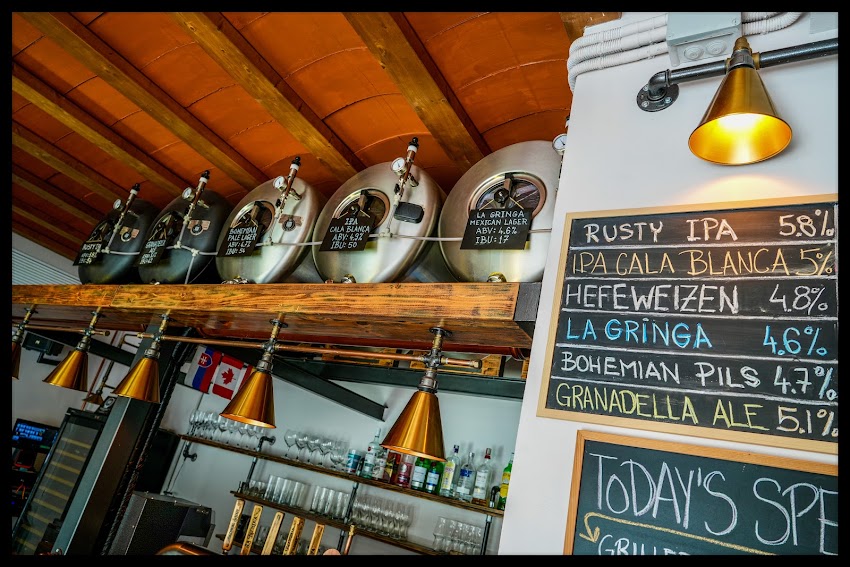 RUSTY
GRANADELLA
ALE
BOHEMIAN
PALE LAGER
IPA
CALA BLANCA
ABV: 4,9%
IBU: 50
LA GRINGA
MEXICAN LAGER
ABV: 4.6%
IBU: 17
RUSTY IPA 5.8%
IPA CALA BLANCA 5%
HEFEWEIZEN 4.8%
LA GRINGA 4.6%
BOHEMIAN PILS 4.7%
GRANADELLA ALE 5.1%
TODAY'S SPE
GRILLE